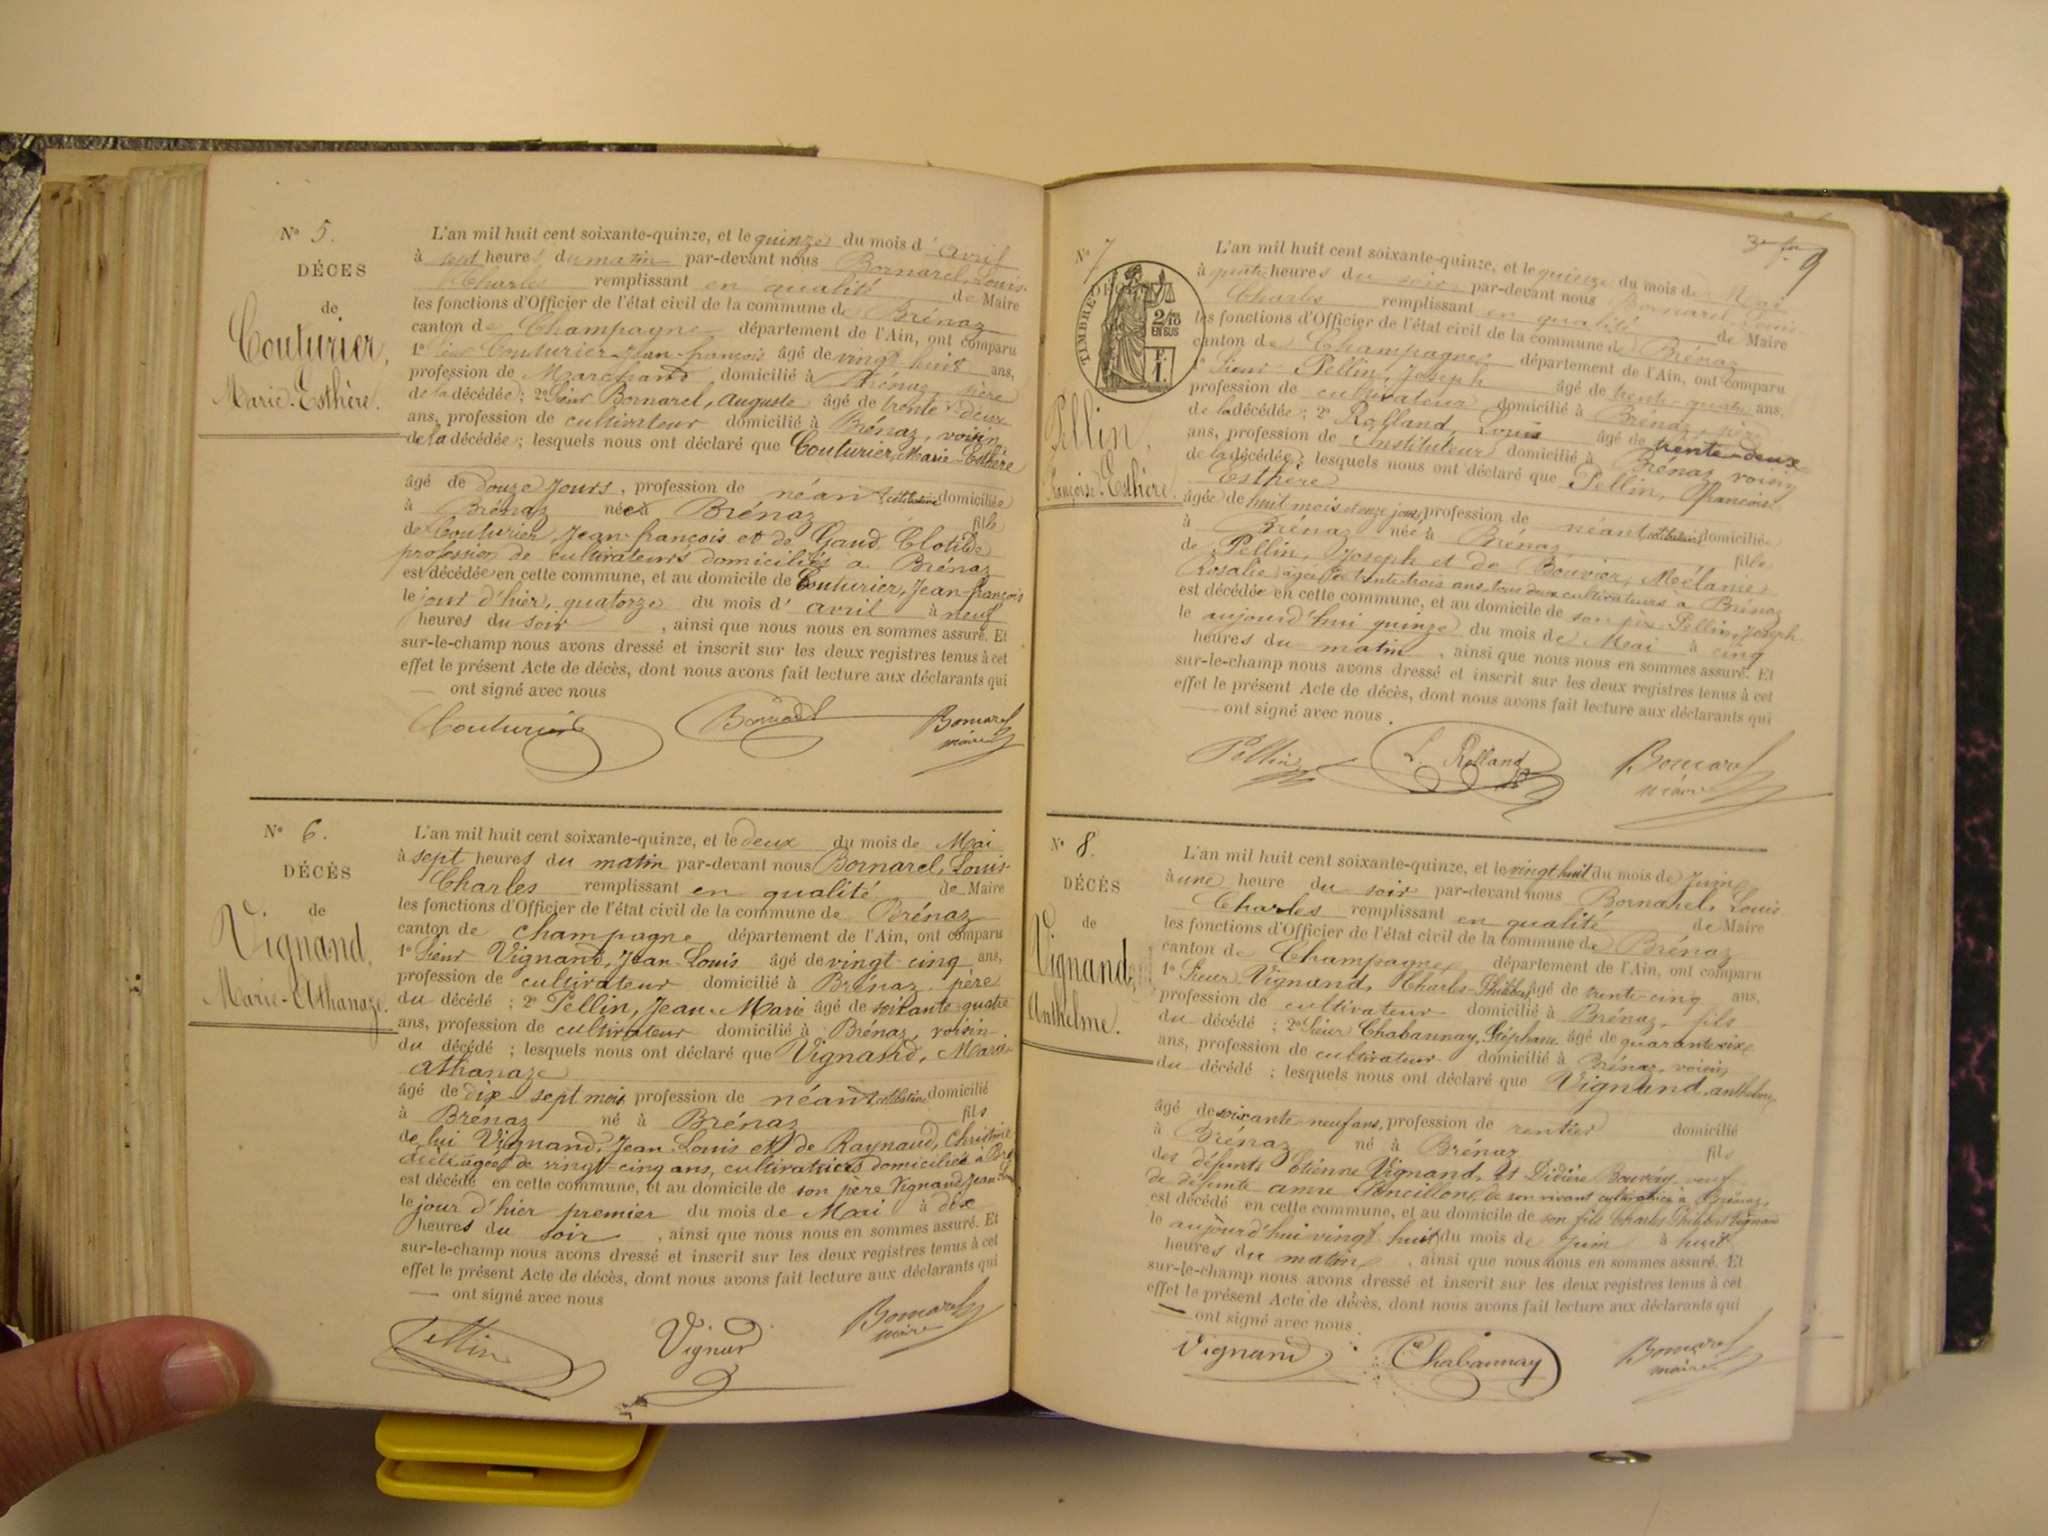 N° 5.
DÉCÈS
de
Couturier,
Marie-Esthère.
L'an mil huit cent soixante-quinze, et le quinze du mois d'avril
à sept heures du matin par-devant nous Bornarel, Louis-
Charles remplissant en qualité de Maire
les fonctions d'Officier de l'état civil de la commune de Brénaz
canton de Champagne département de l'Ain, ont comparu
1° Sieur Couturier Jean-françois âgé de vingt huit ans,
profession de Marchand domicilié à Brénaz, père
de la décédée; 2° Sieur Bornarel, Auguste âgé de trente-deux
ans, profession de cultivateur domicilié à Brénaz, voisin
de la décédée; lesquels nous ont déclaré que Couturier, Marie-Esthère
âgé de douze jours, profession de néant célibataire domiciliée
à Brénaz née à Brénaz fille
de Couturier, Jean-françois et de Gaud Clotilde
profession de cultivateurs domiciliés à Brénaz
est décédée en cette commune, et au domicile de Couturier, Jean-françois
le jour d'hier, quatorze du mois d'avril à neuf
heures du soir, ainsi que nous nous en sommes assuré. Et
sur-le-champ nous avons dressé et inscrit sur les deux registres tenus à cet
effet le présent Acte de décès, dont nous avons fait lecture aux déclarants qui
— ont signé avec nous
Couturier Bornarel Bornarel
maire
N° 6.
DÉCÈS
de
Vignand,
Marie-Athanaze.
L'an mil huit cent soixante-quinze, et le deux du mois de Mai
à sept heures du matin par-devant nous Bornarel, Louis-
Charles remplissant en qualité de Maire
les fonctions d'Officier de l'état civil de la commune de Brénaz
canton de Champagne département de l'Ain, ont comparu
1° Sieur Vignand, Jean-Louis âgé de vingt-cinq ans,
profession de cultivateur domicilié à Brénaz père
du décédé; 2° Pellin, Jean-Marie âgé de soixante-quatre
ans, profession de cultivateur domicilié à Brénaz, voisin
du décédé; lesquels nous ont déclaré que Vignand, Marie-
athanaze
âgé de dix-sept mois, profession de néant célibataire domicilié
à Brénaz né à Brénaz fils
de lui Vignand, Jean Louis et de Raynaud, Christine
âgée de vingt-cinq ans, cultivatrice domiciliée à
est décédé en cette commune, et au domicile de son père Vignand Jean
le jour d'hier premier du mois de Mai à dix
heures du soir, ainsi que nous nous en sommes assuré. Et
sur-le-champ nous avons dressé et inscrit sur les deux registres tenus à cet
effet le présent Acte de décès, dont nous avons fait lecture aux déclarants qui
— ont signé avec nous
Pellin Vignand Bornarel
maire
9
N° 7
TIMBRE
2/10
EN SUS
F.
1.
Pellin,
Françoise-Esthère.
L'an mil huit cent soixante-quinze, et le quinze du mois de Mai
à quatre heures du soir par-devant nous Bornarel Louis-
Charles remplissant en qualité de Maire
les fonctions d'Officier de l'état civil de la commune de Brénaz
canton de Champagne département de l'Ain, ont comparu
1° Sieur Pellin, Joseph âgé de trente-quatre ans,
profession de cultivateur domicilié à Brénaz, père
de la décédée; 2° Rolland, Louis âgé de trente-deux
ans, profession de Instituteur domicilié à Brénaz voisin
de la décédée; lesquels nous ont déclaré que Pellin, françoise
Esthère
âgée de huit mois et onze jours, profession de néant célibataire domiciliée
à Brénaz née à Brénaz fille
de Pellin, Joseph et de Bouvier, Mélanie
Rosalie âgée de trente-trois ans, tous deux cultivateurs à Brénaz
est décédée en cette commune, et au domicile de son père Pellin, Joseph
le aujourd'hui quinze du mois de Mai à cinq
heures du matin, ainsi que nous nous en sommes assuré. Et
sur-le-champ nous avons dressé et inscrit sur les deux registres tenus à cet
effet le présent Acte de décès, dont nous avons fait lecture aux déclarants qui
— ont signé avec nous.
Pellin L. Rolland Bornarel
maire
N° 8.
DÉCÈS
de
Vignand,
Anthelme.
L'an mil huit cent soixante-quinze, et le vingt huit du mois de Juin
à une heure du soir par-devant nous Bornarel, Louis
Charles remplissant en qualité de Maire
les fonctions d'Officier de l'état civil de la commune de Brénaz
canton de Champagne département de l'Ain, ont comparu
1° Sieur Vignand, Charles-Philibert âgé de trente-cinq ans,
profession de cultivateur domicilié à Brénaz, fils
du décédé; 2° Sieur Chabannay, Stéphane âgé de quarante-six
ans, profession de cultivateur domicilié à Brénaz, voisin
du décédé; lesquels nous ont déclaré que Vignand, anthelme
âgé de soixante-neuf ans, profession de rentier domicilié
à Brénaz né à Brénaz fils
des défunts Etienne Vignand, et Didière Bouvéry, veuf
de défunte anne Poncillon, de son vivant cultivatrice à Brénaz,
est décédé en cette commune, et au domicile de son fils Charles Philibert Vignand
le aujourd'hui vingt-huit du mois de Juin à huit
heures du matin, ainsi que nous nous en sommes assuré. Et
sur-le-champ nous avons dressé et inscrit sur les deux registres tenus à cet
effet le présent Acte de décès, dont nous avons fait lecture aux déclarants qui
— ont signé avec nous.
Vignand Chabannay Bornarel
maire